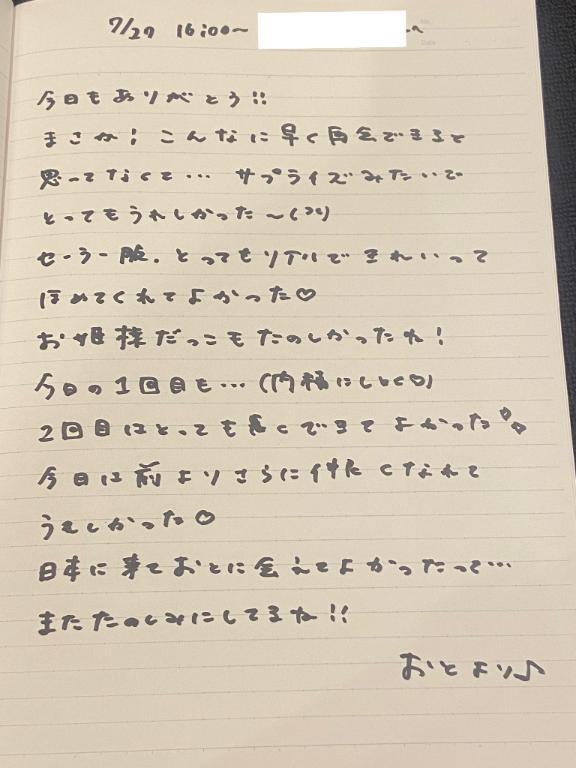 7/27 16:00〜 へ
今日もありがとう!!
まさか! こんなに早く再会できると
思ってなくて… サプライズみたいで
とってもうれしかった〜(> <)
セーラー服、とってもリアルできれいって
ほめてくれてよかった♡
お姫様だっこもたのしかったね!
今日の1回目も…(内緒にしとく♡)
2回目はとっても長くできてよかった♡♡
今日は前よりさらに仲良くなれて
うれしかった♡
日本に来ておとに会えてよかったって…
またたのしみにしてるね!!
おとより♪